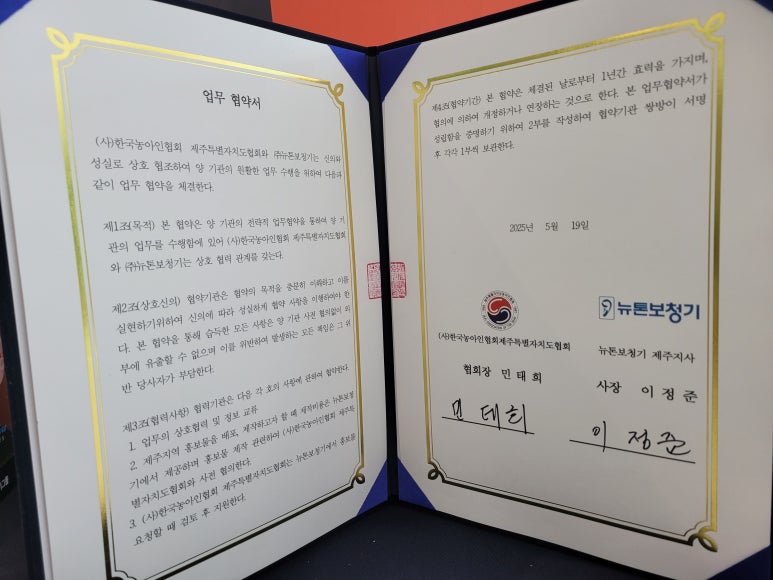 업무 협약서
(사)한국농아인협회 제주특별자치도협회와 ㈜뉴톤보청기는 신의와
성실로 상호 협조하여 양 기관의 원활한 업무 수행을 위하여 다음과
같이 업무 협약을 체결한다.
제1조(목적) 본 협약은 양 기관의 전략적 업무협약을 통하여 양 기
관의 업무를 수행함에 있어 (사)한국농아인협회 제주특별자치도협회
와 ㈜뉴톤보청기는 상호 협력 관계를 갖는다.
제2조(상호신의) 협약기관은 협약의 목적을 충분히 이해하고 이를
실현하기위하여 신의에 따라 성실하게 협약 사항을 이행하여야 한
다. 본 협약을 통해 습득한 모든 사항은 양 기관 사전 협의없이 외
부에 유출할 수 없으며 이를 위반하여 발생하는 모든 책임은 그 위
반 당사자가 부담한다.
제3조(협력사항) 협력기관은 다음 각 호의 사항에 관하여 협약한다.
1. 업무의 상호협력 및 정보 교류
2. 제주지역 홍보물을 배포, 제작하고자 할 때 제작비용은 뉴톤보청
기에서 제공하며 홍보물 제작 관련하여 (사)한국농아인협회 제주특
별자치도협회와 사전 협의한다.
3. (사)한국농아인협회 제주특별자치도협회는 뉴톤보청기에서 홍보물
요청할 때 검토 후 지원한다.
제4조(협약기간) 본 협약은 체결된 날로부터 1년간 효력을 가지며,
협의에 의하여 개정하거나 연장하는 것으로 한다. 본 업무협약서가
성립함을 증명하기 위하여 2부를 작성하여 협약기관 쌍방이 서명
후 각각 1부씩 보관한다.
2025년 5월 19일
뉴톤보청기
(사)한국농아인협회제주특별자치도협회
협회장 민태희
민태희
뉴톤보청기 제주지사
사장 이정준
이정준